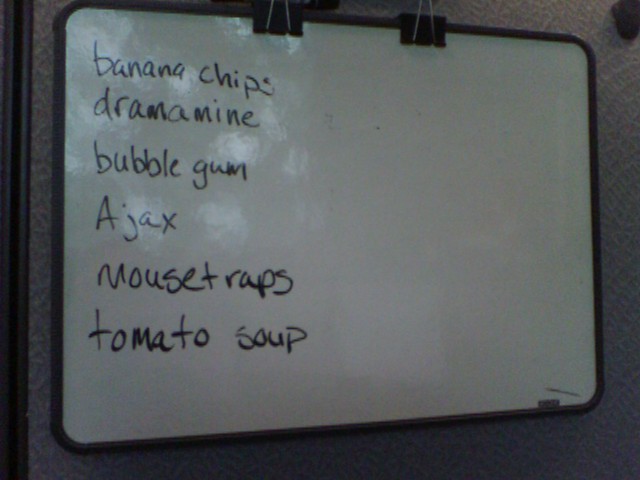 banana chips
dramamine
bubble gum
Ajax
Mousetraps
tomato soup